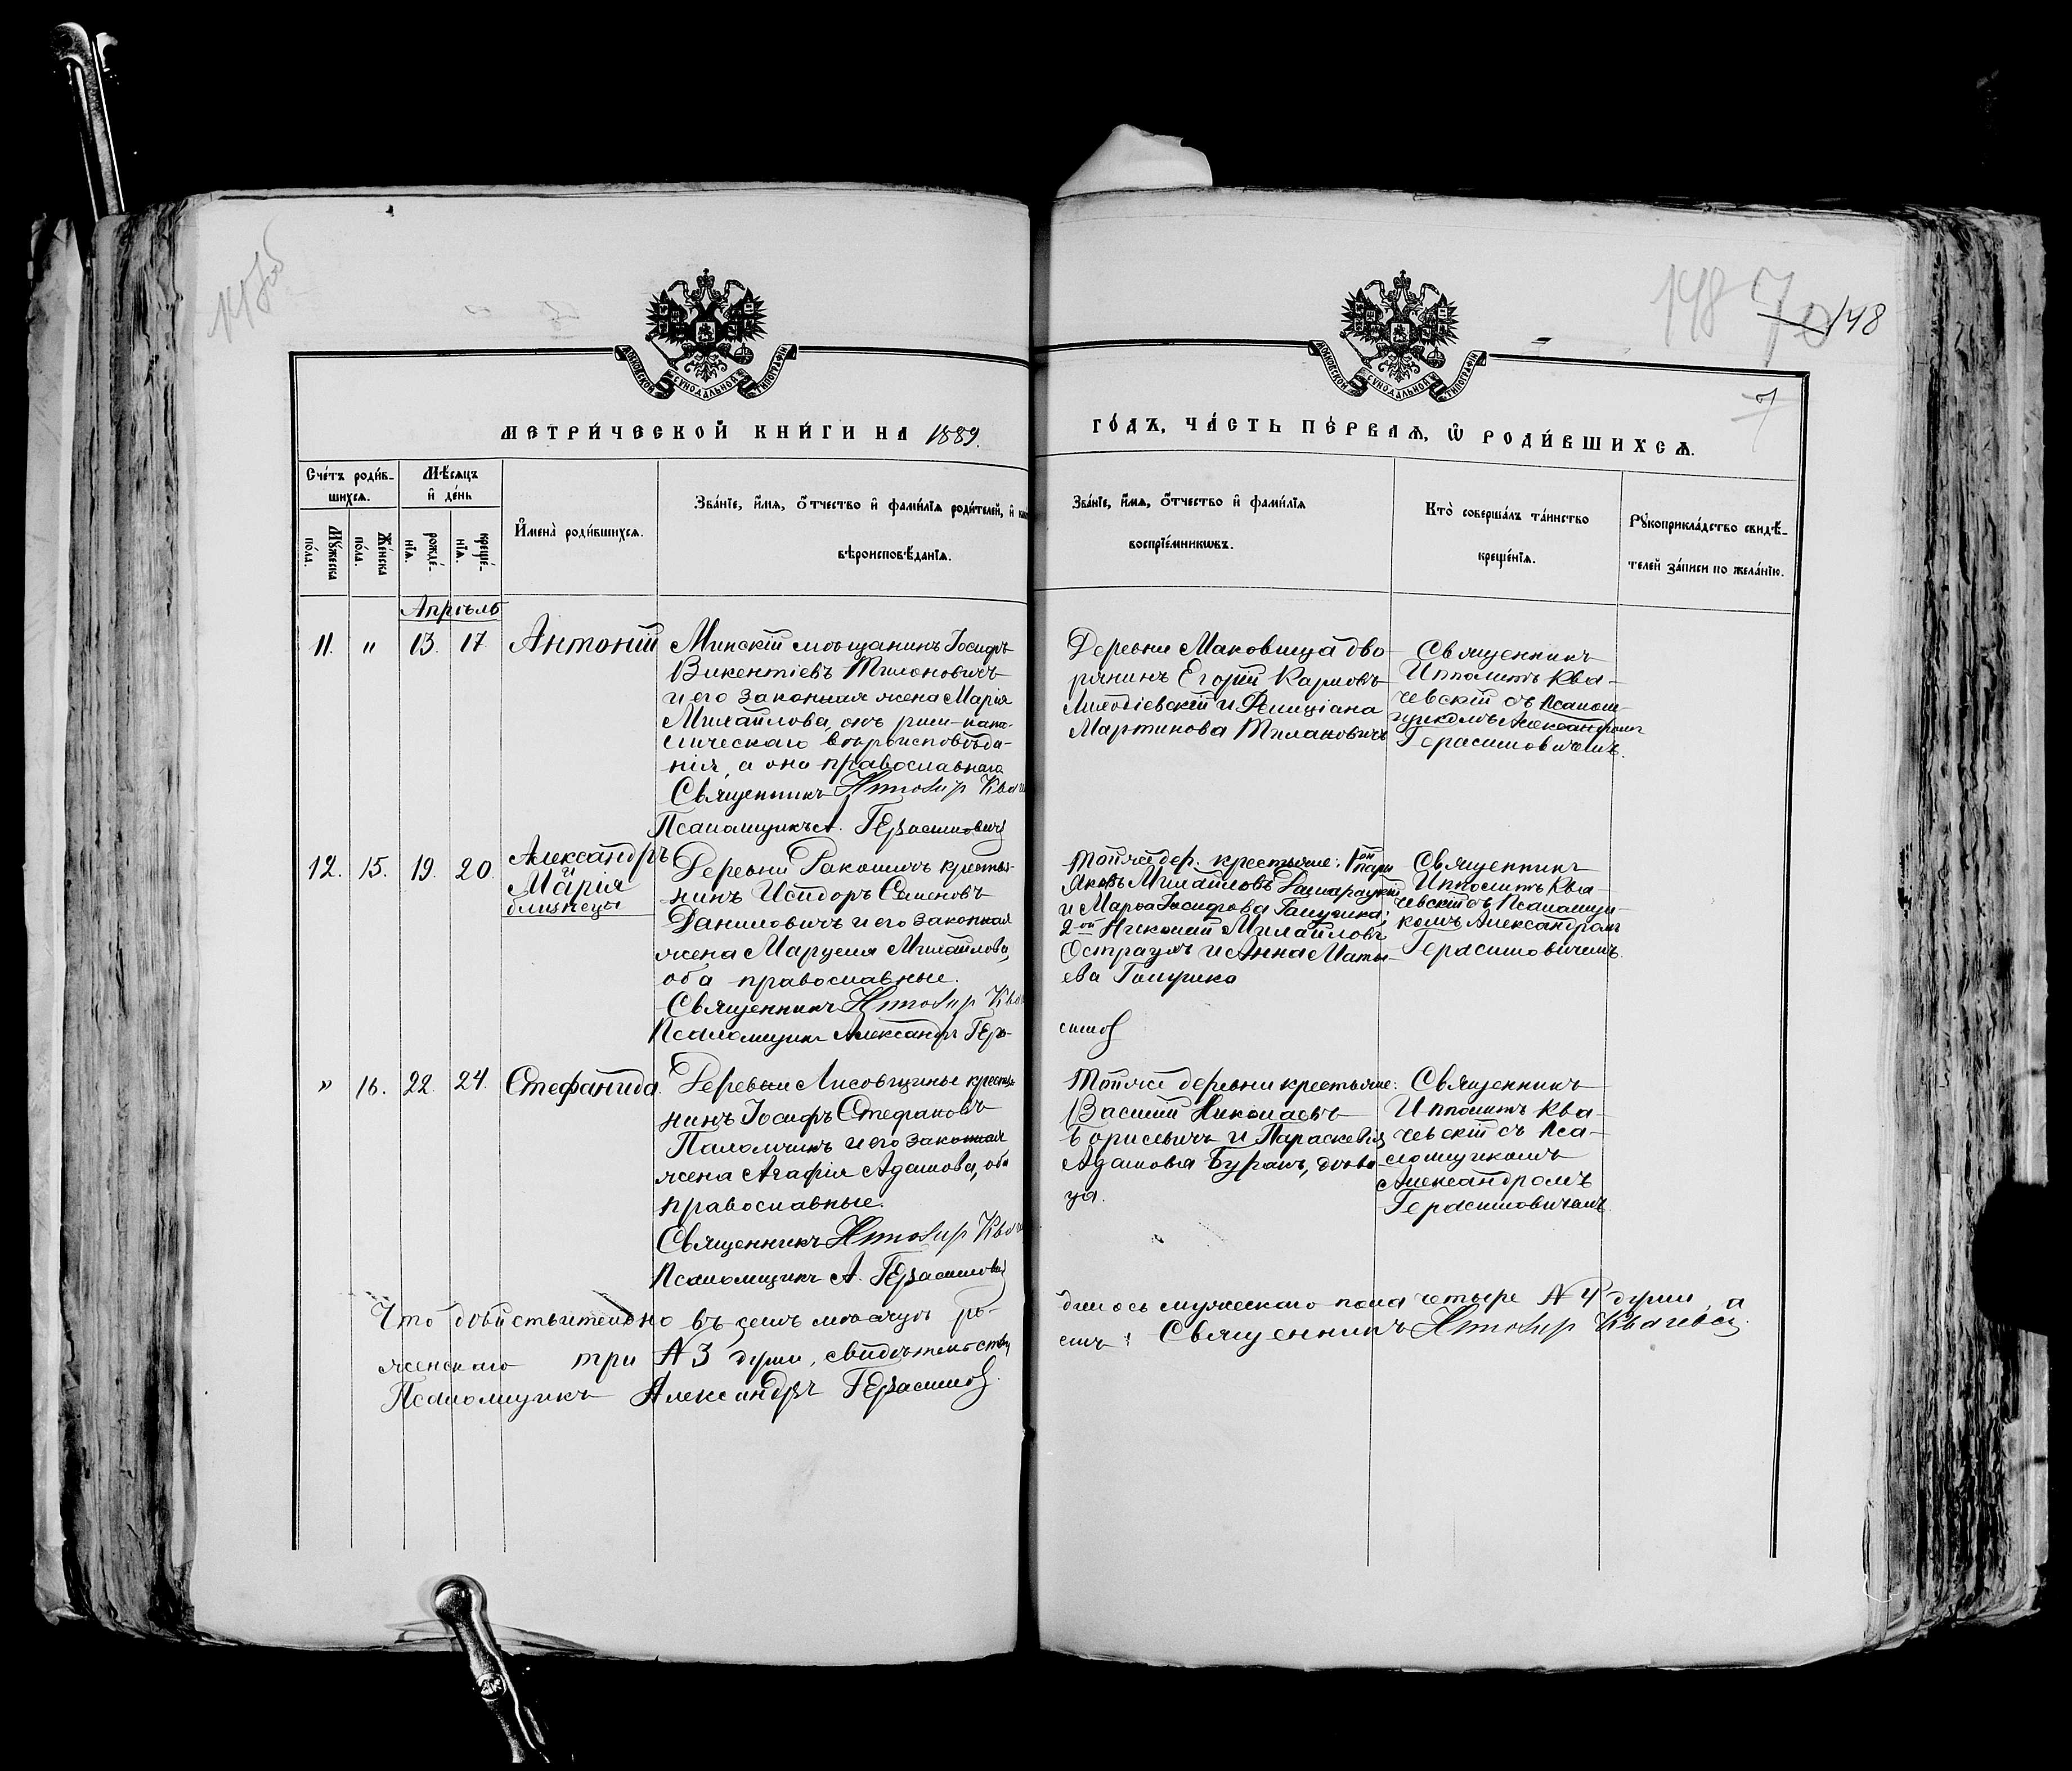 147об
148 70 148
7
МОСКОВСКОЙ СУНОДАЛЬНОЙ ТИПОГРАФІИ
МОСКОВСКОЙ СУНОДАЛЬНОЙ ТИПОГРАФІИ
МЕТРИ́ЧЕСКОЙ КНИ́ГИ НА 1889.
ГО́ДЪ, ЧА́СТЬ ПЕ́РВАѦ, Ѿ РОДИ́ВШИХСѦ.
Сче́тъ роди́в-
шихсѧ.
Мѣсѧцъ
и де́нь
Мꙋ́жеска
по́ла.
Же́нска
по́ла.
рожде́-
нїѧ.
креще́-
нїѧ.
Имена̀ роди́вшихсѧ.
Зва́нїе, и́мѧ, о́тчество и фами́лїѧ роди́телей, и
вѣроисповѣ́данїѧ.
Зва́нїе, и́мѧ, о́тчество и фами́лїѧ
воспрїе́мникѡвъ.
Кто̀ соверша́лъ та́инство
креще́нїѧ.
Рꙋкоприкла́дство свидѣ́-
телей за́писи по жела́нїю.
Апрѣль
11. " 13. 17. Антоній
Минскій мѣщанинъ Іосифъ
Викентіевъ Тилоновичъ
и его законная жена Марія
Михайлова, онъ рим-като-
лическаго вѣроисповѣда-
нія, а она православнаго
Священникъ Ипполитъ
Псаломщикъ А. Герасимович
Деревни Маковища дво-
рянинъ Егорій Карповъ
и Фелиціана
Мартинова
Священникъ
Ипполитъ Ква-
чевскій съ Псалом-
щикомъ Александромъ
Герасимовичемъ.
12. 15. 19. 20. Александръ
и
Марія
близнецы
Деревни Ракошичъ кресть-
нинъ Исидоръ Семеновъ
Даниловичъ и его законная
жена Марцеля Михайлова,
оба православные.
Священникъ Ипполитъ
Псаломщикъ Александръ Гера-
симов
Той же дер. крестьяне: 1ой пары
Яковъ Михайловъ
и Марѳа Іосифова Галушка;
2-ой Николай Михайловъ
Остраухъ и Анна Матѳ-
ева Галушко
Священникъ
Ипполитъ Ква-
чевскій съ Псаломщи-
комъ Александромъ
Герасимовичемъ.
" 16. 22. 24. Стефанида.
Деревни Лисовщины кресть-
нинъ Іосифъ Стефановъ
Паломчикъ и его законная
жена Агафія Адамова, оба
православные.
Священникъ Ипполитъ
Псаломщикъ А. Герасимович
Той же деревни крестьяне:
Василій Николаевъ
Борисевичъ и Параскевія
Адамова Буракъ, дѣви-
ца.
Священникъ
Ипполитъ Ква-
чевскій съ Пса-
ломщикомъ
Александромъ
Герасимовичемъ
Что дѣйствительно въ семъ мѣсяцѣ ро-
дилось мужескаго пола четыре № 4 души, а
женскаго три № 3 души, свидѣтельству
емъ: Священникъ Ипполитъ Квачевскій.
Псаломщикъ Александръ Герасимов.